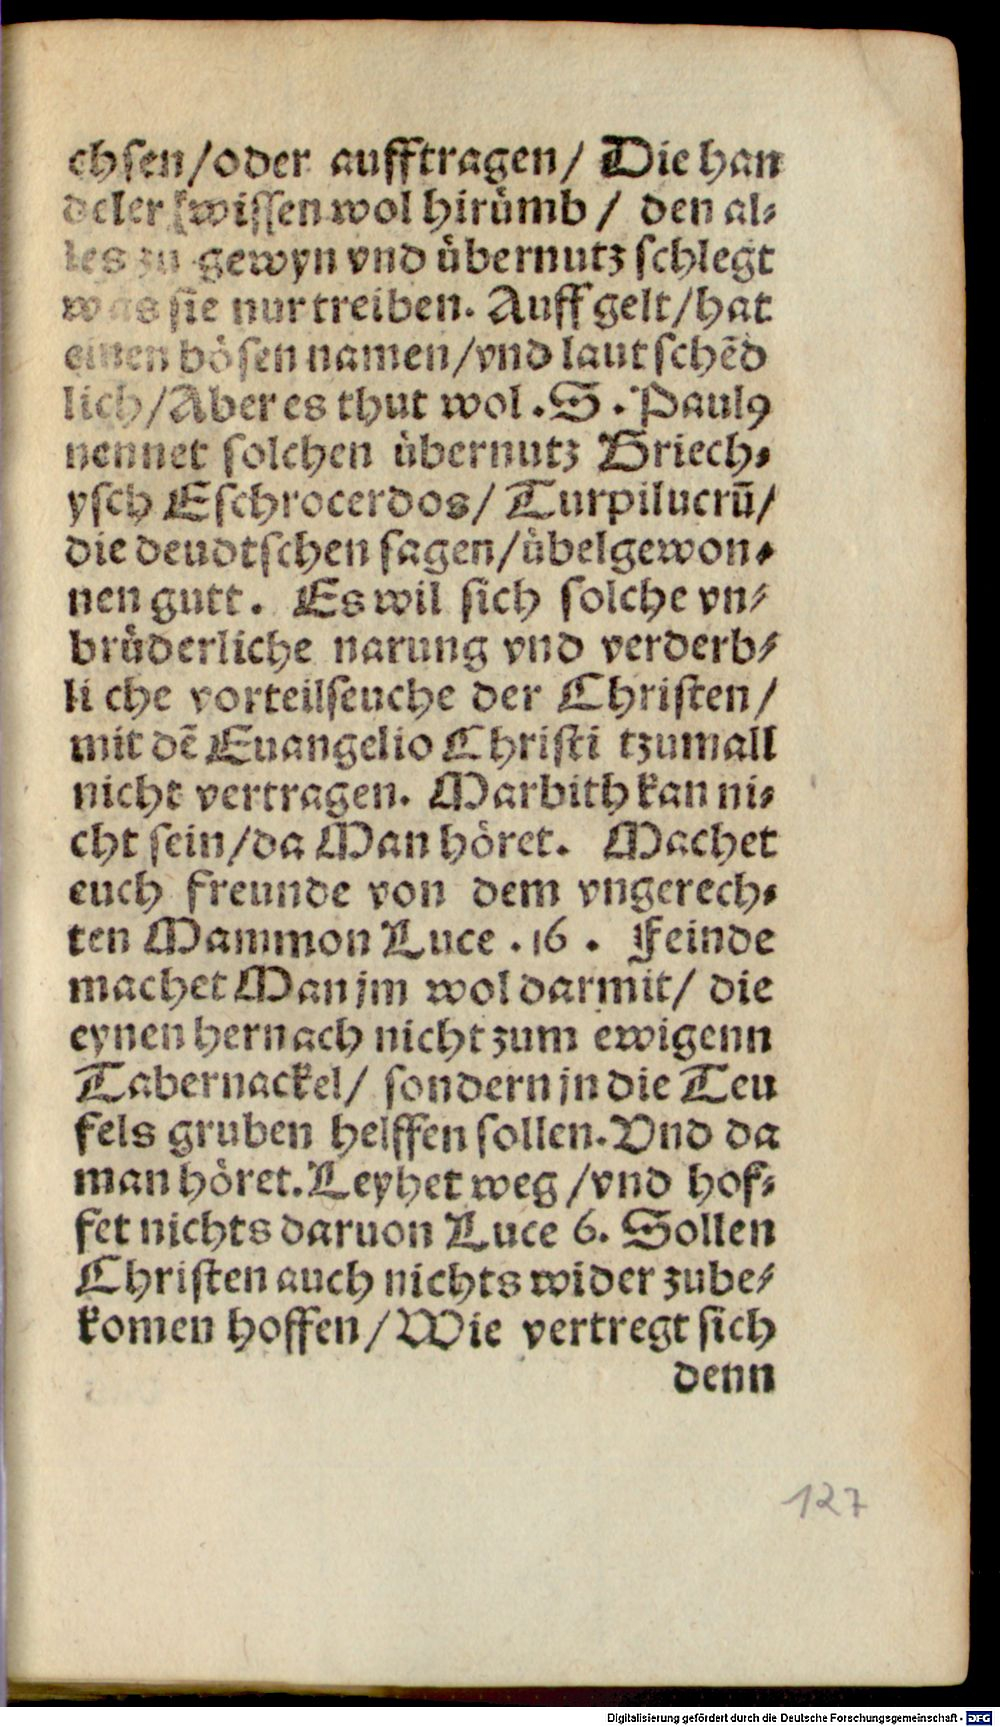 chsen/oder aufftragen/ Die han
deler wissen wol hirůmb / den al⸗
les zu gewyn vnd ůbernutz schlegt
was sie nur treiben. Auff gelt/hat
einen bösen namen/vnd laut schẽd
lich/Aber es thut wol .S. Paulꝯ
nennet solchen ůbernutz Griech⸗
ysch Eschrocerdos/ Turpilucrũ/
die deudtschen sagen/ůbelgewon⸗
nen gutt. Es wil sich solche vn⸗
brůderliche narung vnd verderb⸗
li che vorteilseuche der Christen/
mit dẽ Euangelio Christi tzumall
nicht vertragen. Marbith kan ni⸗
cht sein/da Man höret. Machet
euch freunde von dem vngerech⸗
ten Mammon Luce .16. Feinde
machet Man jm wol darmit/ die
eynen hernach nicht zum ewigenn
Tabernackel/ sondern jn die Teu
fels gruben helffen sollen. Vnd da
man höret. Leyhet weg /vnd hof⸗
fet nichts daruon Luce 6. Sollen
Christen auch nichts wider zube⸗
komen hoffen/Wie vertregt sich
denn
127
Digitalisierung gefördert durch die Deutsche Forschungsgemeinschaft - DFG